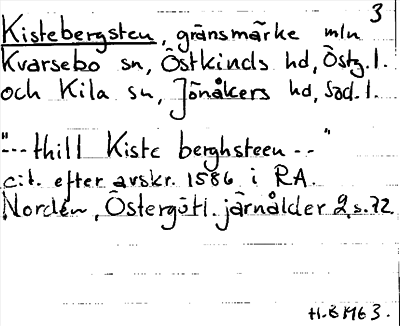 3
Kistebergsten, gränsmärke mln
Kvarsebo sn, Östkinds hd, Östg. l.
och Kila sn, Jönåkers hd, Söd. l.
"--- thill Kiste berghsteen -- "
cit. efter avskr. 1586 i RA.
Nordén, Östergötl. järnålder 2, s. 72
H.B 1963.